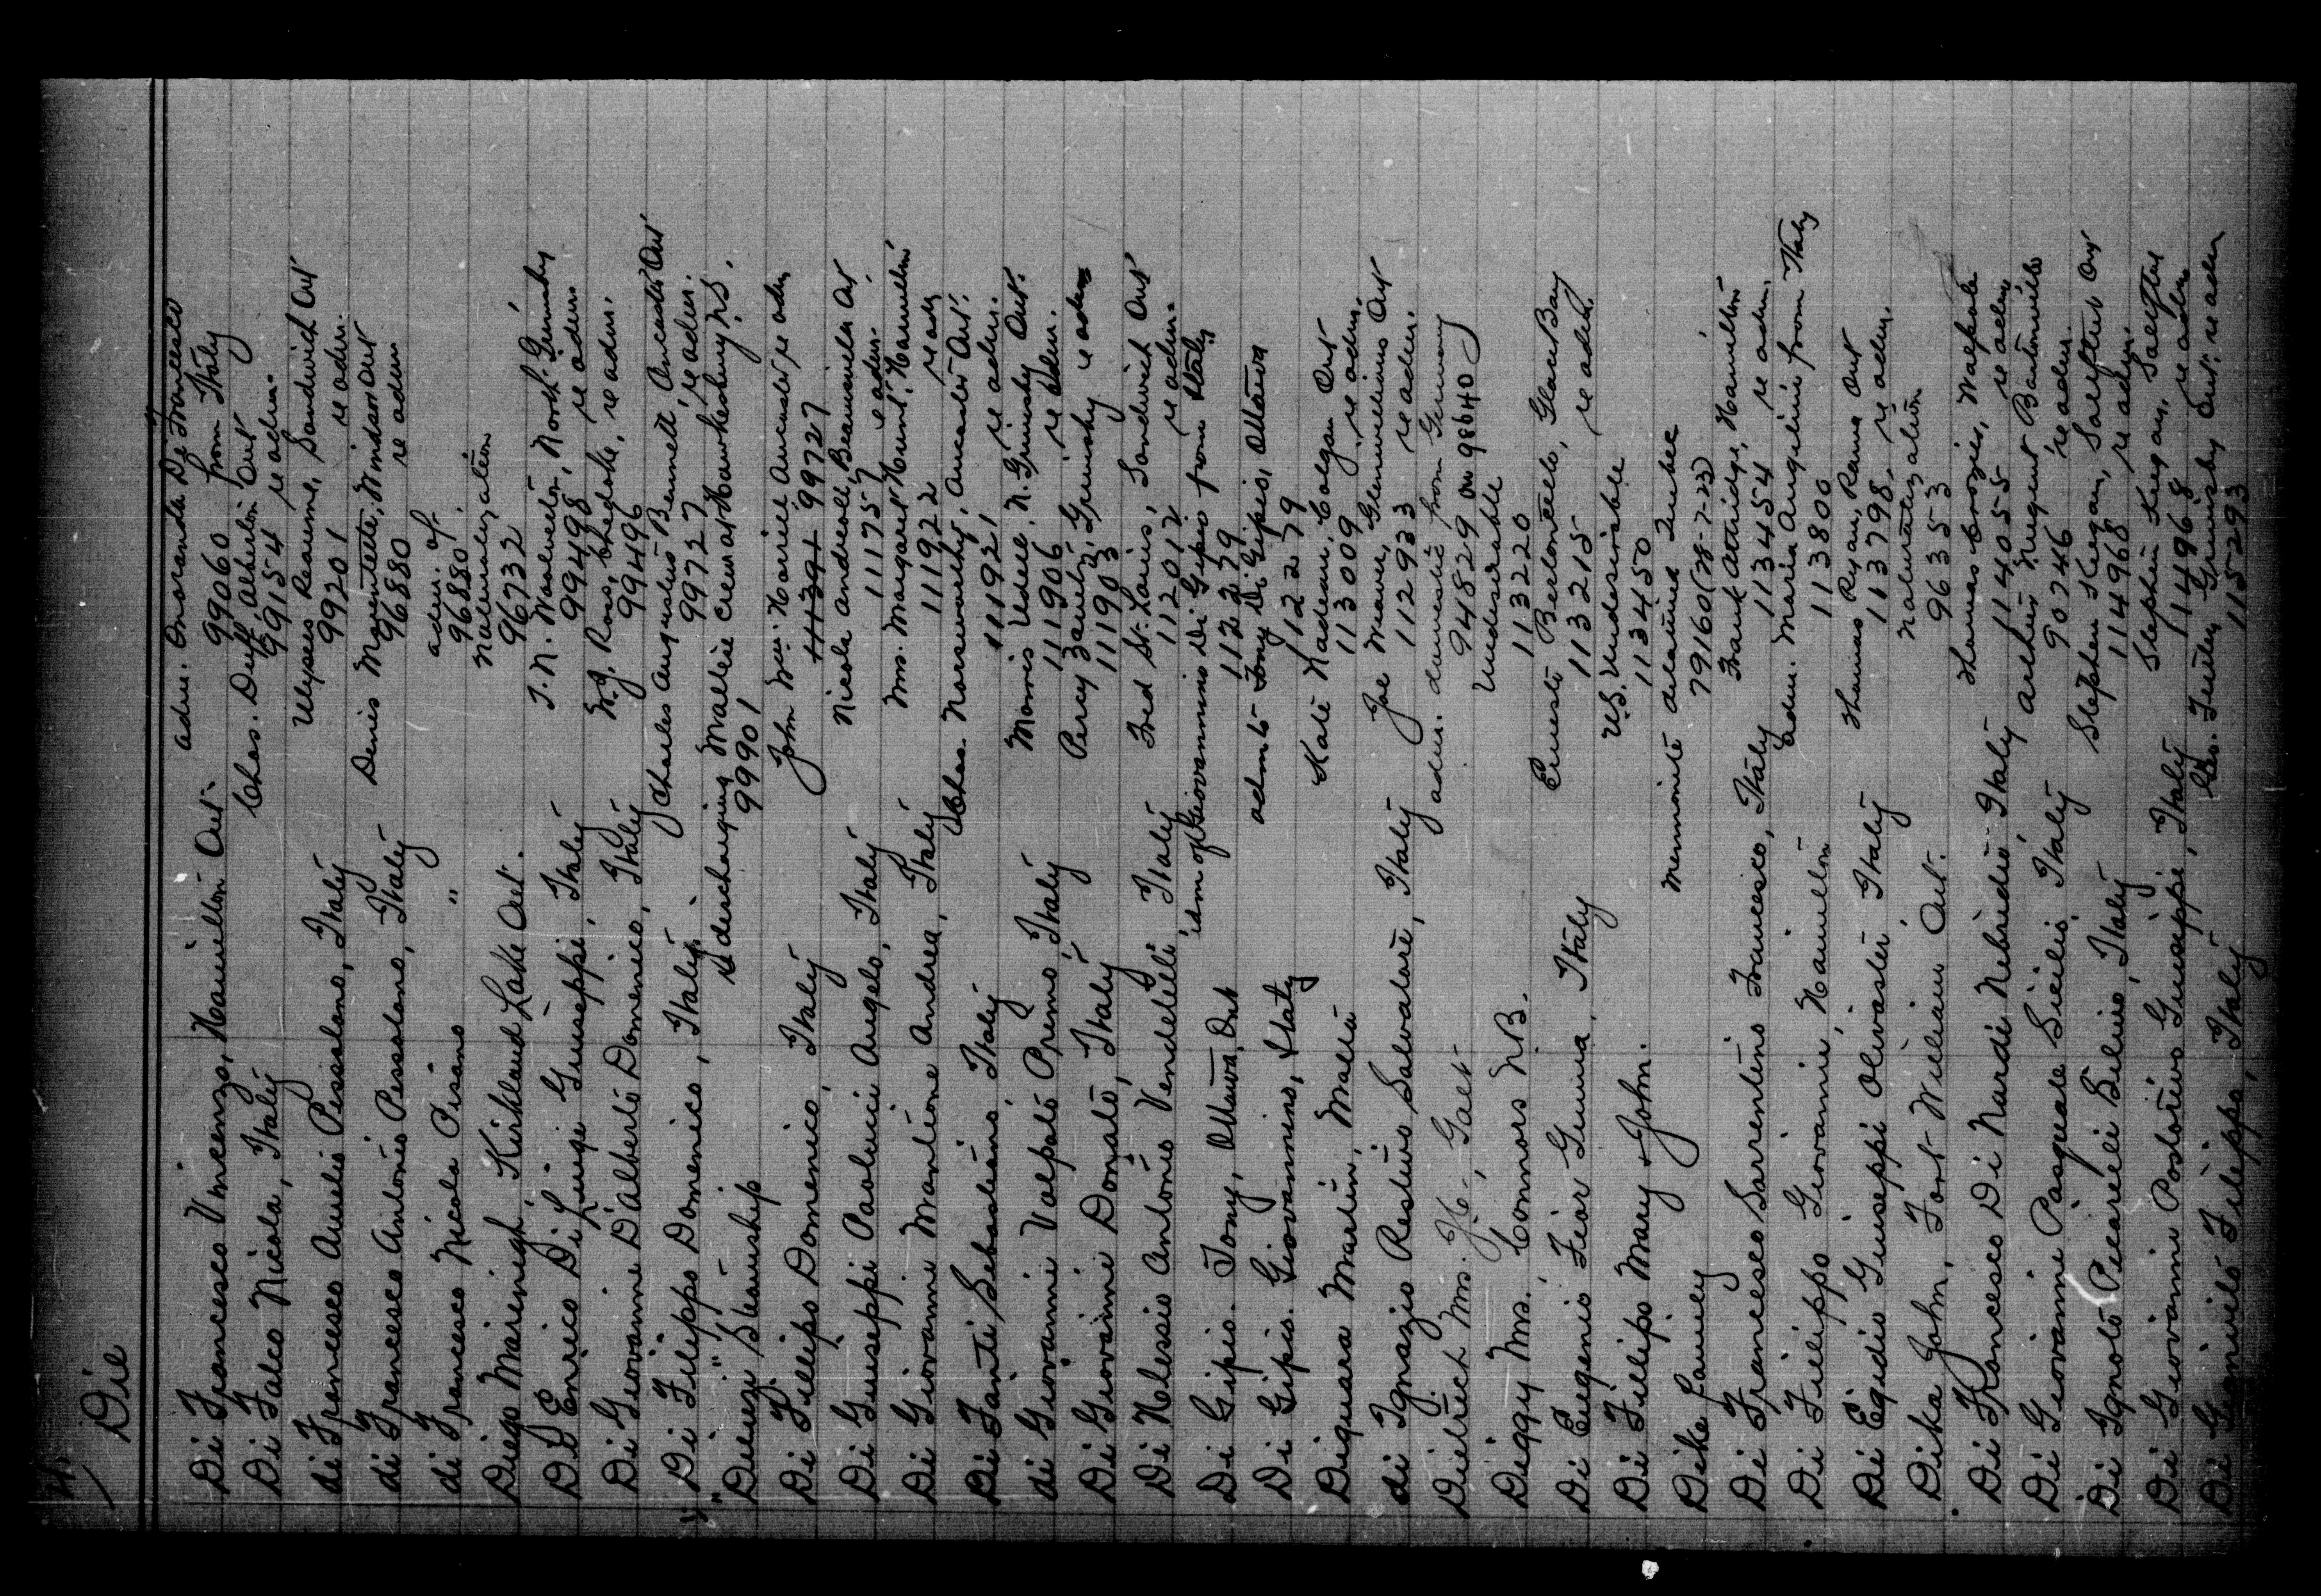 Die
Di Francesco Vincenzo, Hamilton Ont.
adm. Onoranda Di Francesco
99060 from Italy
Di Falco Nicola, Italy
Chas. Duff, Alberton Ont
99154 re adm.
di Francesco Aurelio Pessolano, Italy
Ulysses Reaume, Sandwich Ont
99201 re adm.
di Francesco Antonio Pessolano, Italy
Denis Marentette, Windsor Ont
96880 re adm
di Francesco Nicola Pisano "
adm. of
96880
Diego Marinigh, Kirkland Lake Ont.
Naturalization
96732
Di Enrico Di Luigi Guiseppi, Italy
T. N. Walmeton, North Grimsby
99498, re adm
Di Giovanni D'Alberto Domenico, Italy
W. J. Ross, Chedoke, re adm.
99496
" Di Filippo Domenico, Italy
Charles Augustus Bennett, Ancaster Ont
99727 re adm.
" " "
Steamship
discharging Maltese Crew at Hawkesbury N.S.
99901
Di Fillipo Domenico, Italy
John Wm. Harid Ancaster re adm
113391 99727
Di Guiseppi Paolucci Angelo, Italy
Nicola Andreoli, Beamsville Ont
111757 re adm.
Di Giovanni Mantione Andrea, Italy
Mrs. Margaret Hunt, Hamilton
111922 re adm
Di Fanti Sebastiano, Italy
Chas. Norsworthy, Ancaster Ont.
111921 re adm.
di Giovanni Valpato Premo, Italy
Morris Udell, N. Grimsby Ont.
111906 re adm.
Di Giovanni Donato, Italy
Percy Grimsby re adm
111903
Di Nolessio Antonio Vendelelli Italy
Fred St. Louis, Sandwich Ont
112012 re adm.
Di Gipio. Tony, Ottawa, Ont
idm of Giovannino Di Gipio from Italy
112279
Di Gipio. Giovannino, Italy
adm to Tony Di Gipio, Ottawa
112279
Diguara Martin, Malta
Kate Nadeau, Colgan Ont
113009 re adm.
di Ignazio Restivo Salvatore, Italy
Joe Glenwilliams Ont
112933 re adm.
Dietrich Mrs. Galt
adm. domestic from Germany
94829 on 98640
Diggy Mrs. Connors N.B.
Undesirable
113220
Di Eugenio Fior Gemma, Italy
Ernesto Bertontello, Glace Bay
113215 re adm.
Di Fillipo Mary & John.
U.S. Undesirable
113450
Dike Lamey
Mennonite detained Quebec
79160 (W-7-23)
Di Francesco Sarrentino Francesco, Italy
Frank Attridge, Hamilton
113454 re adm.
Di Fillippo Giovanni, Hamilton
adm. Maria Angelini from Italy
113800
Di Egidio Guiseppi Olivastri Italy
Thomas Ryan, Rama Ont
113798 re adm.
Dika John, Fort William Ont.
Naturalization
96353
Di Francesco Di Nardi Nebridio Italy
Thomas Crozier, Walpole
114055 re adm
Di Giovanni Pasquale Sicilio, Italy
Arthur Nugent Bartonville
90746 re adm.
Di Ignoto Picarelli Silvio, Italy
Stephen Keegan, Saltfleet Ont
114968 re adm.
Di Giovanni Postorivo Guiseppi, Italy
Stephen Keegan, Saltfleet
114968 re adm
Di Filippo, Italy
Grimsby Ont. re adm
115293